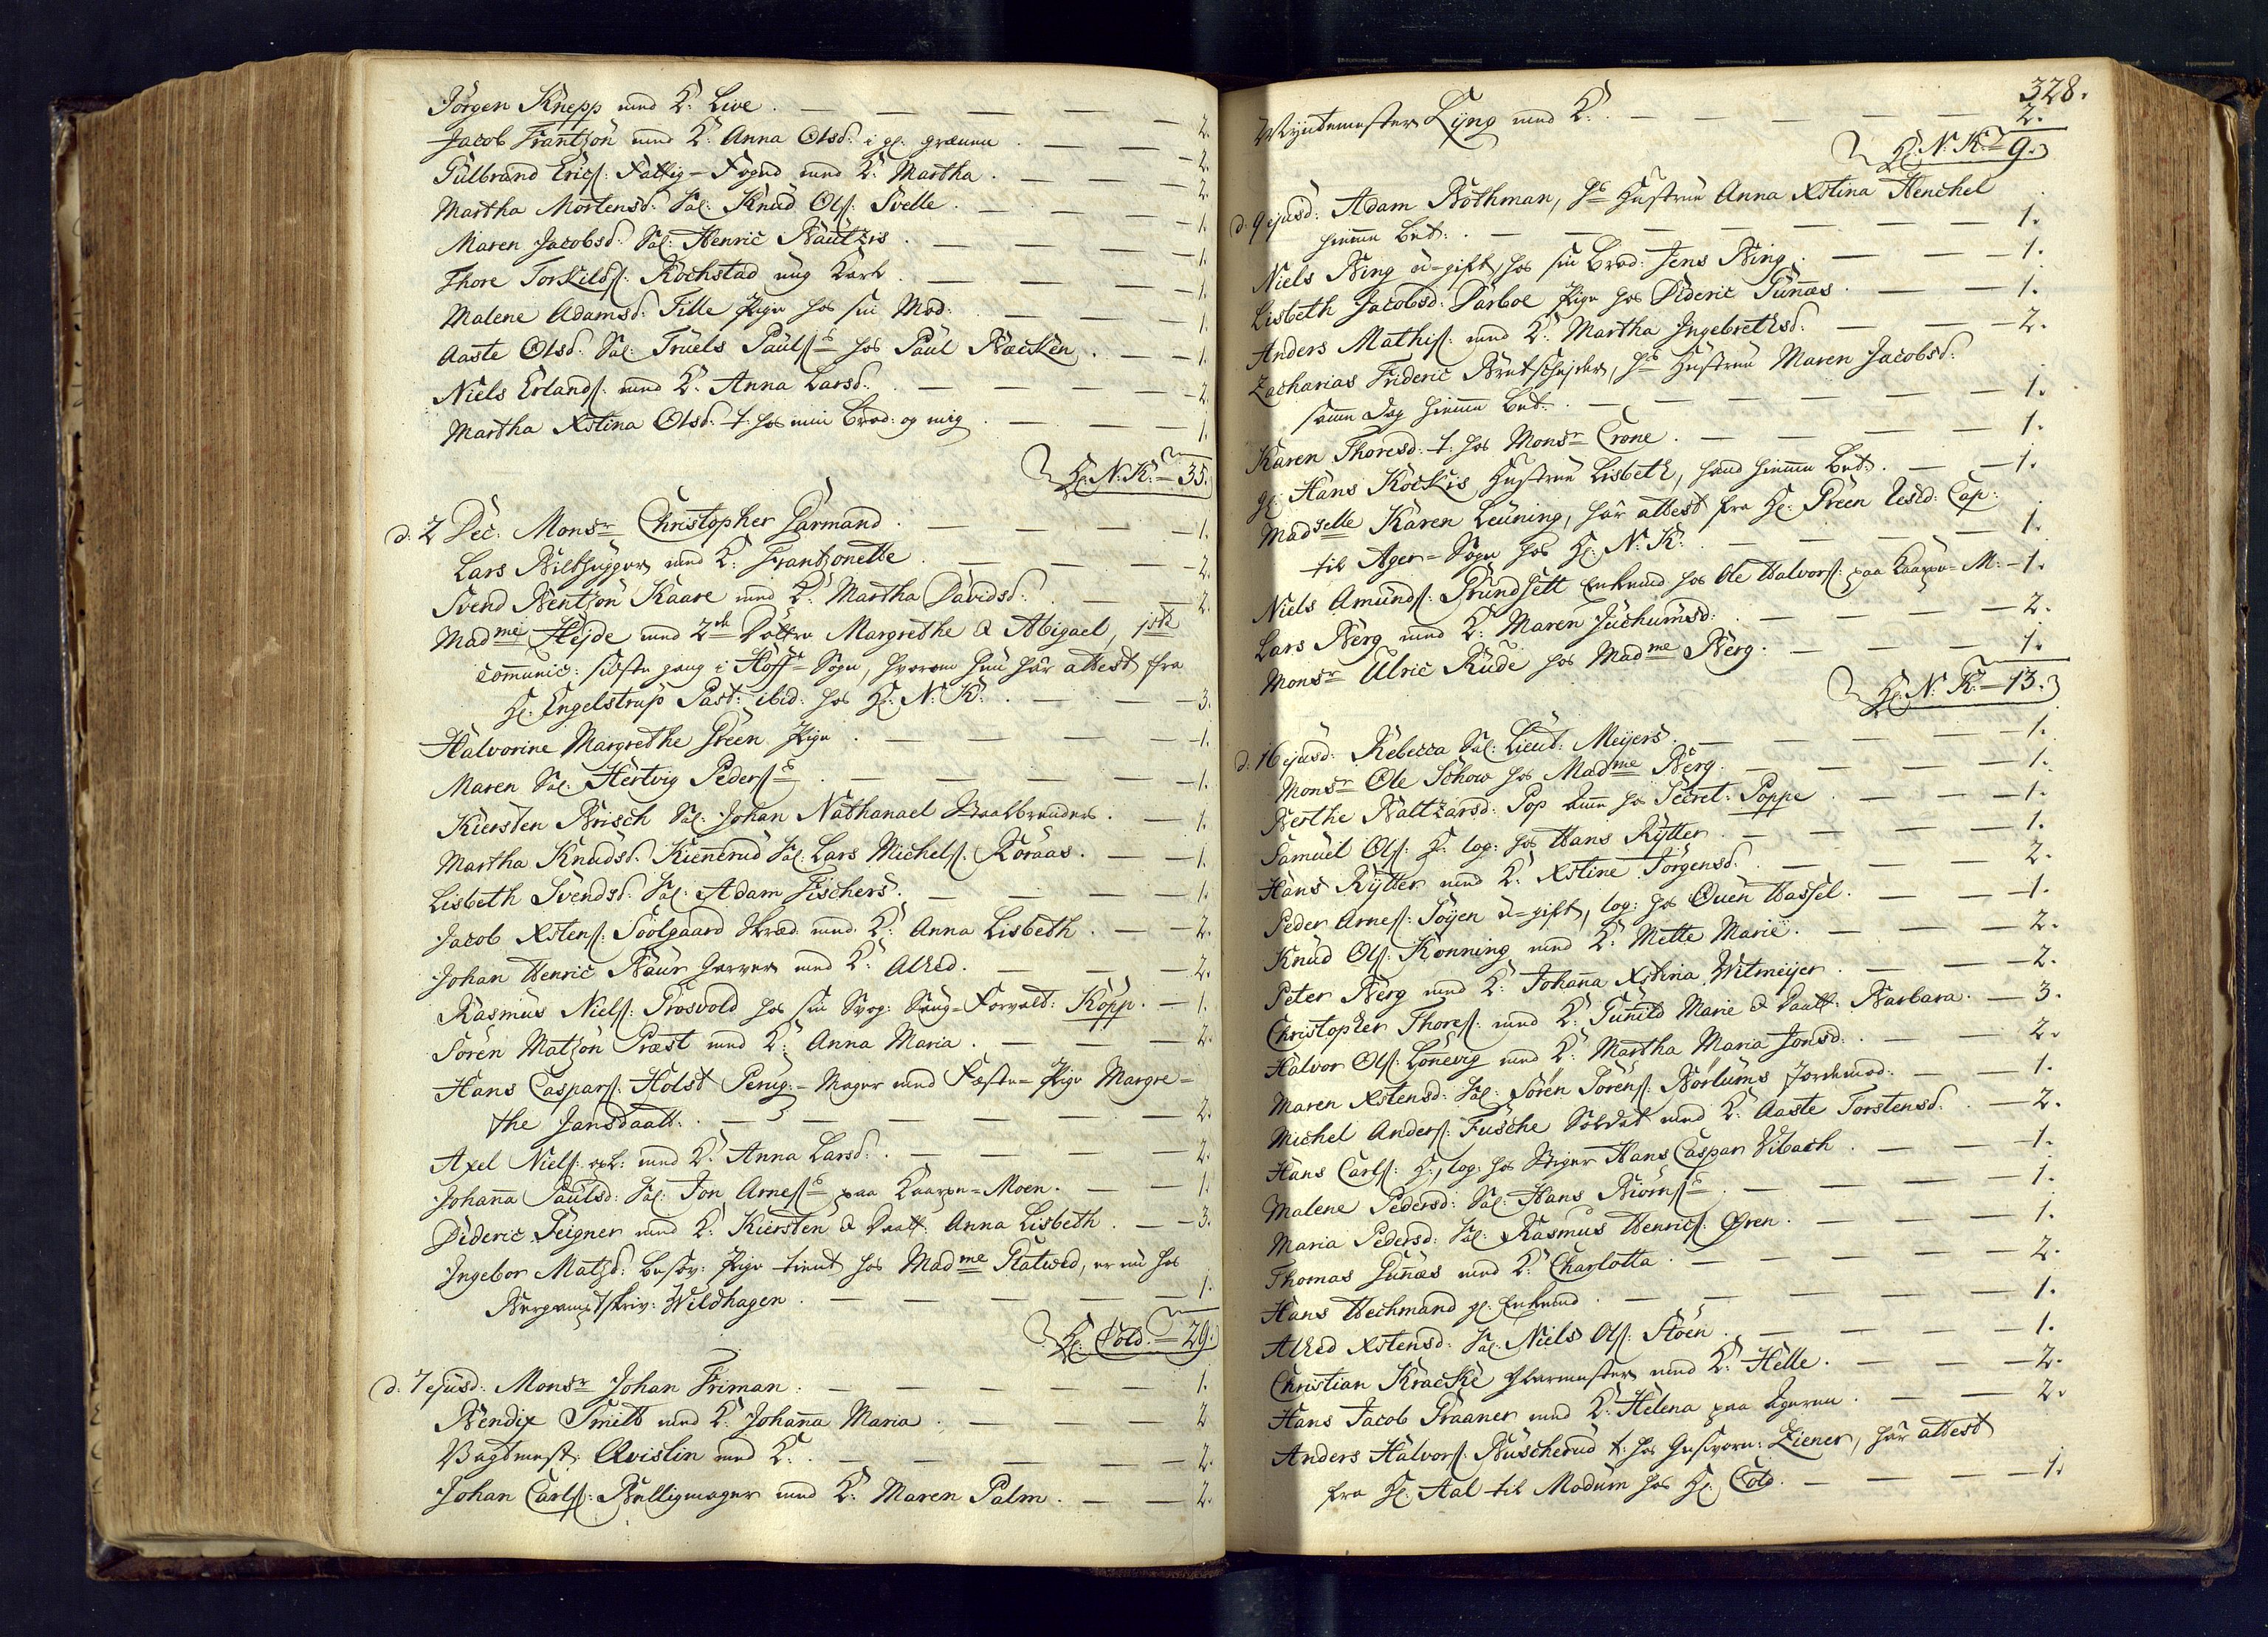 Jörgen Knepp med K: Live. — 2.
Jacob Frantzön med K: Anna Olsd: i gl: — 2.
Gulbrand Erics: Fattig-Fogud med K: Martha. — 2.
Martha Mortensd: Sal: Knud Ols: Svelle. — 1.
Maren Jacobsd: Sal: Henric Bautzis. — 1.
Thore Torkilds: Rochstad ung Karl. — 1.
Malene Adamsd: Tille Pige hos sin Mod: — 1.
Aaste Olsd: Sal: Truels Pauls: hos Paul Backen. — 1.
Niels Erlands: med K: Anna Larsd: — 2.
Martha Xstina Olsd: t: hos min Brod: og mig. — 1.
Hr: N: K: = 35.
d: 2 Dec: Monsr Christopher Garmand. — 1.
Lars med K: Frantzonette — 2.
Svend Bentzön Kaare med K: Martha Davidsd: — 2.
Madme Hejde med 2de Döttre Margrethe & Abigael, 1ste
communic: sidste gang i Hoff-Sogn, hvorom hun har attest fra
Hr: Engelstrup Past: ibid: hos Hr: N: K: — 3.
Halvorine Margrethe Green Pige — 1.
Maren Sal: Hertvig Peders: — 1.
Kiersten Brisch Sal: Johan Nathanael Staalbrenders. — 1.
Martha Knudsd: Kiennerud Sal: Lars Michels: Koraas. — 1.
Lisbeth Svendsd: Sal: Adam Fischers. — 1.
Jacob Xstens: Soolgaard Skred: med K: Anna Lisbeth. — 2.
Johan Henric Baur Garver med K: Alhed. — 2.
Rasmus Niels: Grosvold hos sin Svog: Forvalt: Köpp. — 1.
Sören Matzön Præst med K: Anna Maria. — 2.
Hans Caspars: Holst Peruq:-Mager med Fæste-Pige Margre-
the Jansdaatt: — 2.
Axel Niels: med K: Anna Larsd: — 2.
Johanna Paulsd: Sal: Jon Arnes: paa Kaarpe-Moen. — 1.
Dideric Seigner med K: Kiersten & Daatt: Anna Lisbeth. — 3.
Ingebor Matzd: besov: Pige tient hos Madme Statwed, er nu hos
Bergamtskriv: Wildhagen. — 1.
Hr: Cold. = 29.
d: 7 ejusd: Monsr Johan Friman. — 1.
Bendix Smitt med K: Johanna Maria. — 2
Vagtmest: Qvislin med K: — 2.
Johan Carls: Belligmager med K: Maren Palm. — 2.
328.
Myntemester Lÿng med K: — 2.
Hr: N: K: = 9.
d: 9 ejusd: Adam Bothman, hs Hustrue Anna Xstina Henchel
hiemme Bet: — 1.
Niels Bing u-gift, hos sin Brod: Jens Bing. — 1.
Lisbeth Jacobsd: Darboe Pige hos Dideric Gunnæs. — 1.
Anders Mathis: med K: Martha Ingebretzd: — 2.
Zacharias Frideric Bretschejder, hs Hustrue Maren Jacobsd:
samme Dag hiemme Bet: — 1.
Karen Thoresd: t: hos Monsr Crone. — 1.
gl: Hans Kockis Hustrue Lisbeth, hand hiemme Bet: — 1.
Madselle Karen Leuning, har attest fra Hr: Green Resid: Cap:
til Ager-Sogn hos Hr: N: K: — 1.
Niels Amunds: Grundsett Enkemd hos Ole Halvors: paa Kaarpe-M: — 1.
Lars Berg med K: Maren Juchumsd: — 2.
Monsr Ulric Rude hos Madme Berg. — 1.
Hr: N: K: = 13.
d: 16 ejusd: Rebecca Sal: Lieut: Meijers. — 1.
Monsr Ole Schow hos Madme Berg. — 1.
Berthe Baltzarsd: Pop Amme hos Secret: Poppe — 1.
Samuel Ols: S: log: hos Hans Rytter. — 1.
Hans Rytter med K: Xstine Jörgensd: — 2.
Peder Arnes: Soijen u-gift, log: hos Ouen Hassel. — 1.
Knud Ols: Konning med K: Mette Marie. — 2.
Peter Berg med K: Johanna Xstina Witmeijer. — 2.
Christopher Thores: med K: Gunild Marie & Daatt: Barbara. — 3.
Halvor Ols: Lönevig med K: Martha Maria Jonsd: — 2.
Maren Xstensd: Sal: Sören Sörens: Börlums Jordemod: — 1.
Michel Anders: Fusche Soldat med K: Aaste Torstensd: — 2.
Hans Carls: S:, log: hos Stiger Hans Caspar Vibach. — 1.
Malene Pedersd: Sal: Hans Biörns: — 1.
Maria Pedersd: Sal: Rasmus Henrics: Ören. — 1.
Thomas Gunnæs med K: Charlotta. — 2.
Hans Hechmand gl: Enkemd. — 1.
Alhed Xstensd: Sal: Niels Ols: Stöen. — 1.
Christian Kracke med K: Helle. — 2.
Hans Jacob Graaner med K: Helena paa Ageren. — 2.
Anders Halvors: Buscherud t: hos Gesvorn: Ziener, har attest
fra Hr: Aal til Modum hos Hr: Cold. — 1.